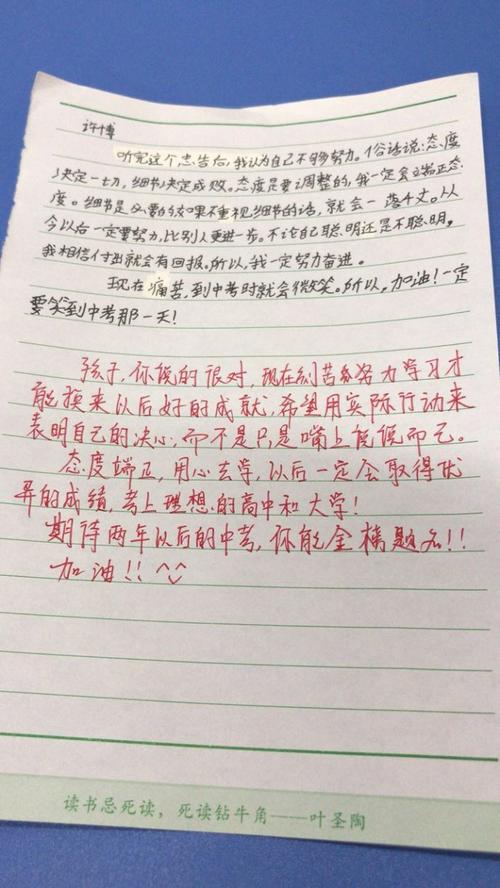 许博
听完这个忠告后,我认为自己不够努力。俗话说:态度
决定一切,细节决定成败。态度是要调整的,我一定会端正态
度。细节是必要的如果不重视细节的话,就会一落千丈。从
今以后一定要努力,比别人更进一步。不论自己聪明还是不聪明,
我相信付出就会有回报。所以,我一定努力奋进。
现在痛苦,到中考时就会微笑。所以,加油!一定
要笑到中考那一天!
孩子,你说的很对,现在刻苦努力学习才
能换来以后好的成就,希望用实际行动来
表明自己的决心,而不是只是嘴上说说而已。
态度端正,用心去学,以后一定会取得优
异的成绩,考上理想的高中和大学!
期待两年以后的中考,你能金榜题名!!
加油!!^^
读书忌死读,死读钻牛角——叶圣陶